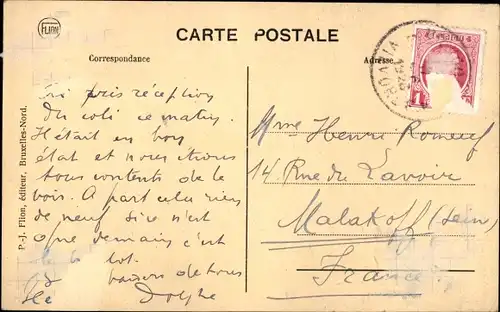 FLION
CARTE POSTALE
Correspondance
Adresse
P.-J. Flion, éditeur, Bruxelles-Nord.
pris réception
du coli ce matin.
Il était en bon
état et nous étions
tous contents de le
voir. A part cela rien
de neuf si ce n'est
que demain c'est
le lot.
baisers de tous
Dolphe
1
Mme Henri Romeuf
14 Rue du Lavoir
Malakoff (Sein)
France